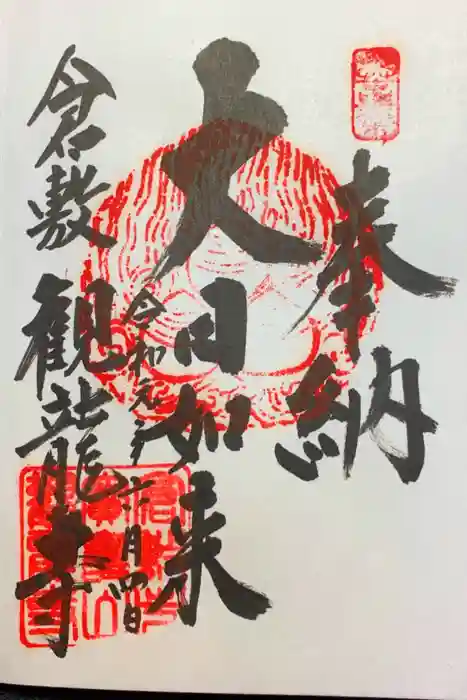 奉納
大日如来
令和元年六月四日
倉敷
観龍寺